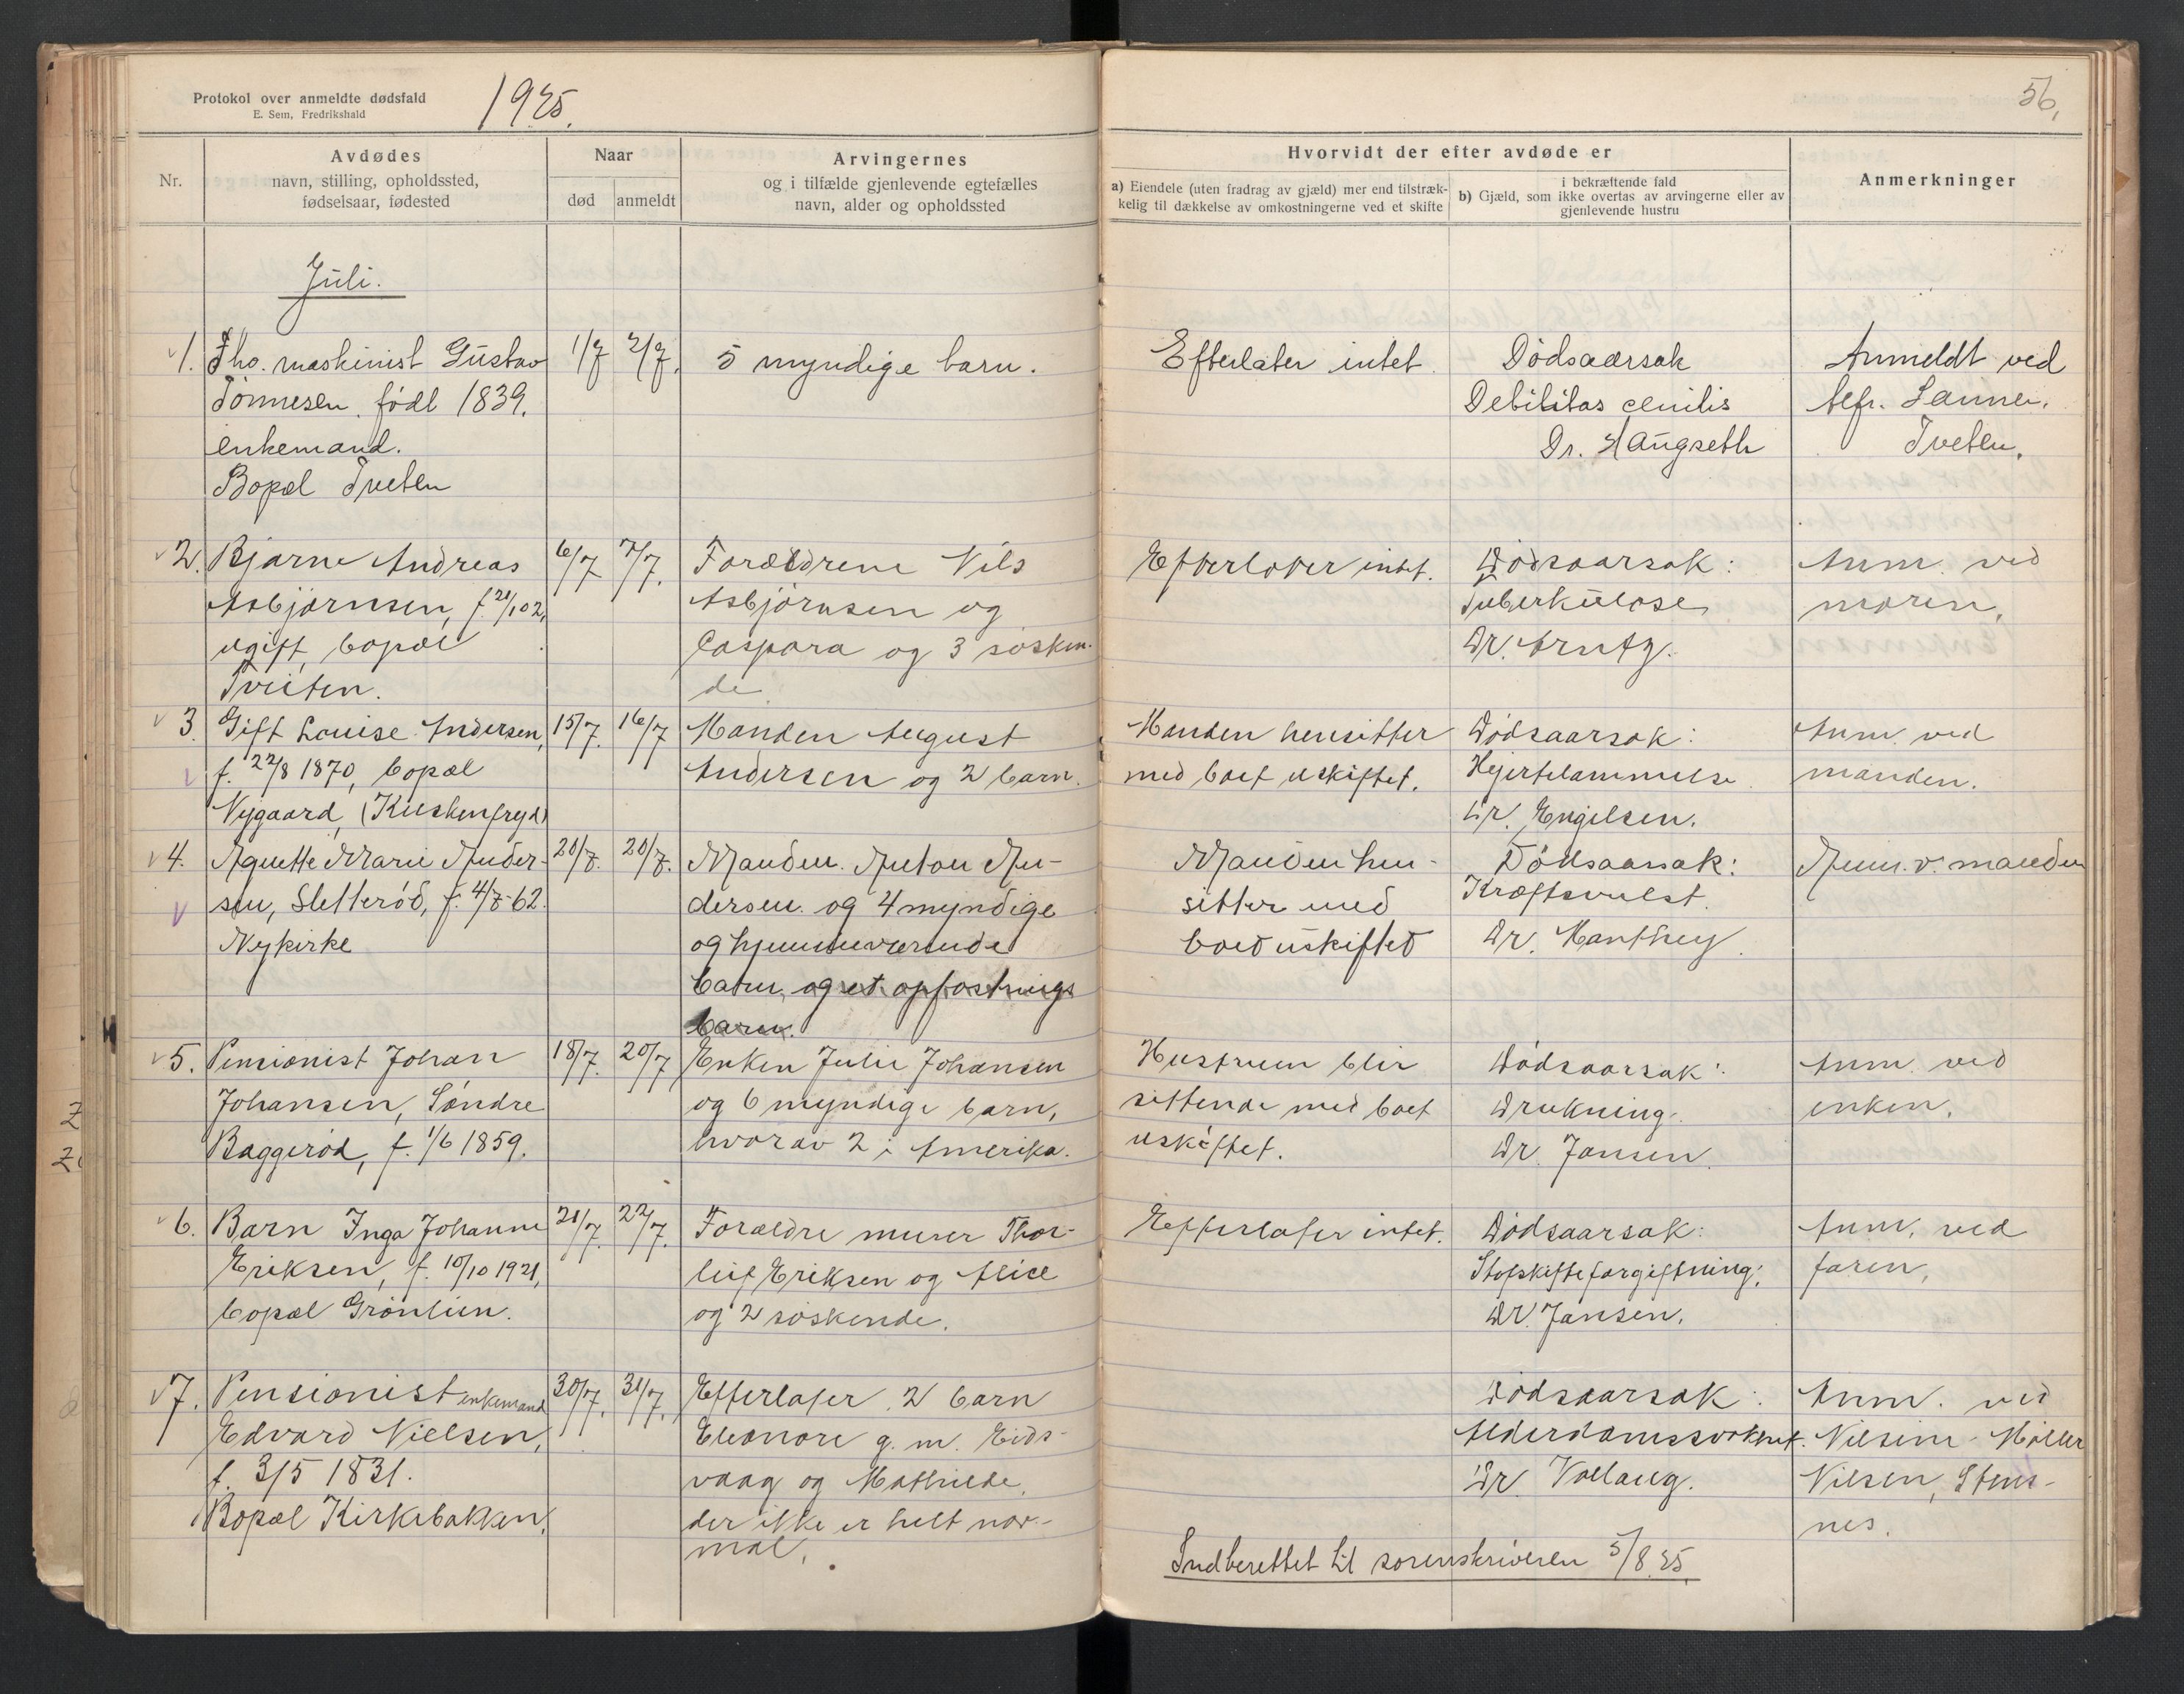 Protokol over anmeldte dødsfald
E. Sem, Fredrikshald
1925.
56,
Nr.
Avdødes
navn, stilling, opholdssted,
fødselsaar, fødested
Naar
død
anmeldt
Arvingernes
og i tilfælde gjenlevende egtefælles
navn, alder og opholdssted
Hvorvidt der efter avdøde er
a) Eiendele (uten fradrag av gjæld) mer end tilstræk-
kelig til dækkelse av omkostningerne ved et skifte
i bekræftende fald
b) Gjæld, som ikke overtas av arvingerne eller av
gjenlevende hustru
Anmerkninger
Juli.
1.
Fho. maskinist Gustav
Tönnesen, født 1839.
enkemand.
Bopæl Tveten
1/7
2/7.
5 myndige barn.
Efterlater intet.
Dödsaarsak
Debilitas cenilis
Dr. Haugseth
Anmeldt ved
Tveten.
2.
Bjarne Andreas
Asbjørnsen, f. 21/1 02,
ugift, bopæl
Tveiten.
6/7
7/7.
Forældrene Nils
Asbjørnsen og
Caspara og 3 søsken-
de
Efterlater intet.
Dødsaarsak:
Tuberkulose
Dr. Arntz.
Anm. ved
moren.
3.
Gift Louise Andersen,
f. 22/8 1870, bopæl
Nygaard, (Kuskenfryd)
15/7.
16/7
Manden August
Andersen og 2 barn.
Manden hensitter
med boet uskiftet.
Dødsaarsak:
Hjertelammelse.
Dr. Engelsen.
Anm. ved
manden.
4.
Agnette Marie Ander-
sen, Sletterød, f. 4/7-62.
Nykirke
20/7.
20/7.
Manden Anton An-
dersen og 4 myndige
og hjemmeværende
barn, og et opfostrings
barn.
Manden hen-
sitter med
boet uskiftet
Dødsaarsak:
Kræftsvulst.
Dr. Manthey.
Anm. v. manden
5.
Pensionist Johan
Johansen, Søndre
Baggerød, f. 1/6 1859.
18/7.
20/7
Enken Julie Johansen
og 6 myndige barn,
hvorav 2 i Amerika.
Hustruen blir
sittende med boet
uskiftet.
Dødsaarsak:
Drukning.
Dr. Jansen.
Anm. ved
enken.
6.
Barn Inga Johanne
Eriksen, f. 10/10 1921,
bopæl Grønlien.
21/7.
22/7.
Forældre murer Thor-
leif Eriksen og Alice
og 2 søskende.
Efterlater intet.
Dødsaarsak:
Stofskifteforgiftning.
Dr. Jansen.
Anm. ved
faren.
7.
Pensionist enkemand
Edvard Nielsen,
f. 3/5 1831.
Bopæl Kirkebakken.
30/7.
31/7.
Efterlater 2 barn
Eleonore g. m. Eids-
vaag og Mathilde,
der ikke er helt nor-
mal.
Dødsaarsak:
Alderdomssvakhet.
Dr. Vollaug.
Anm. ved
Nilsine Møller
Nilsen, Stens-
nes.
Indberettet til sorenskriveren 5/8.25.